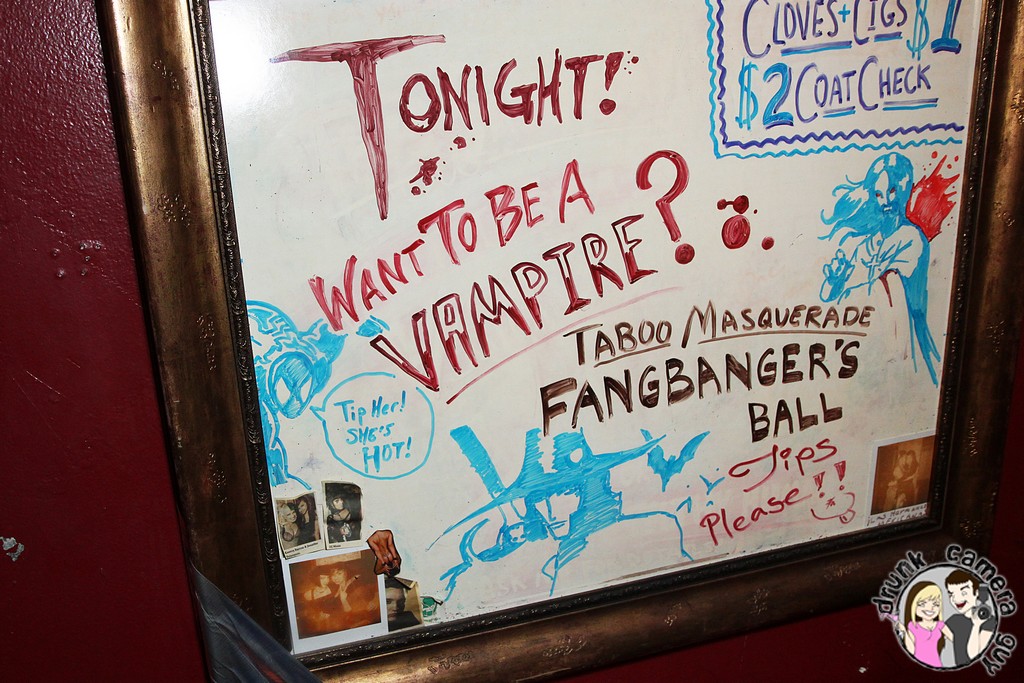 CLOVES + CIGS $1
$2 COAT CHECK
TONIGHT!
WANT TO BE A
VAMPIRE?
TABOO MASQUERADE
FANGBANGER'S
BALL
Tip Her!
SHE'S
HOT!
Tips
Please!!
drunk camera guy